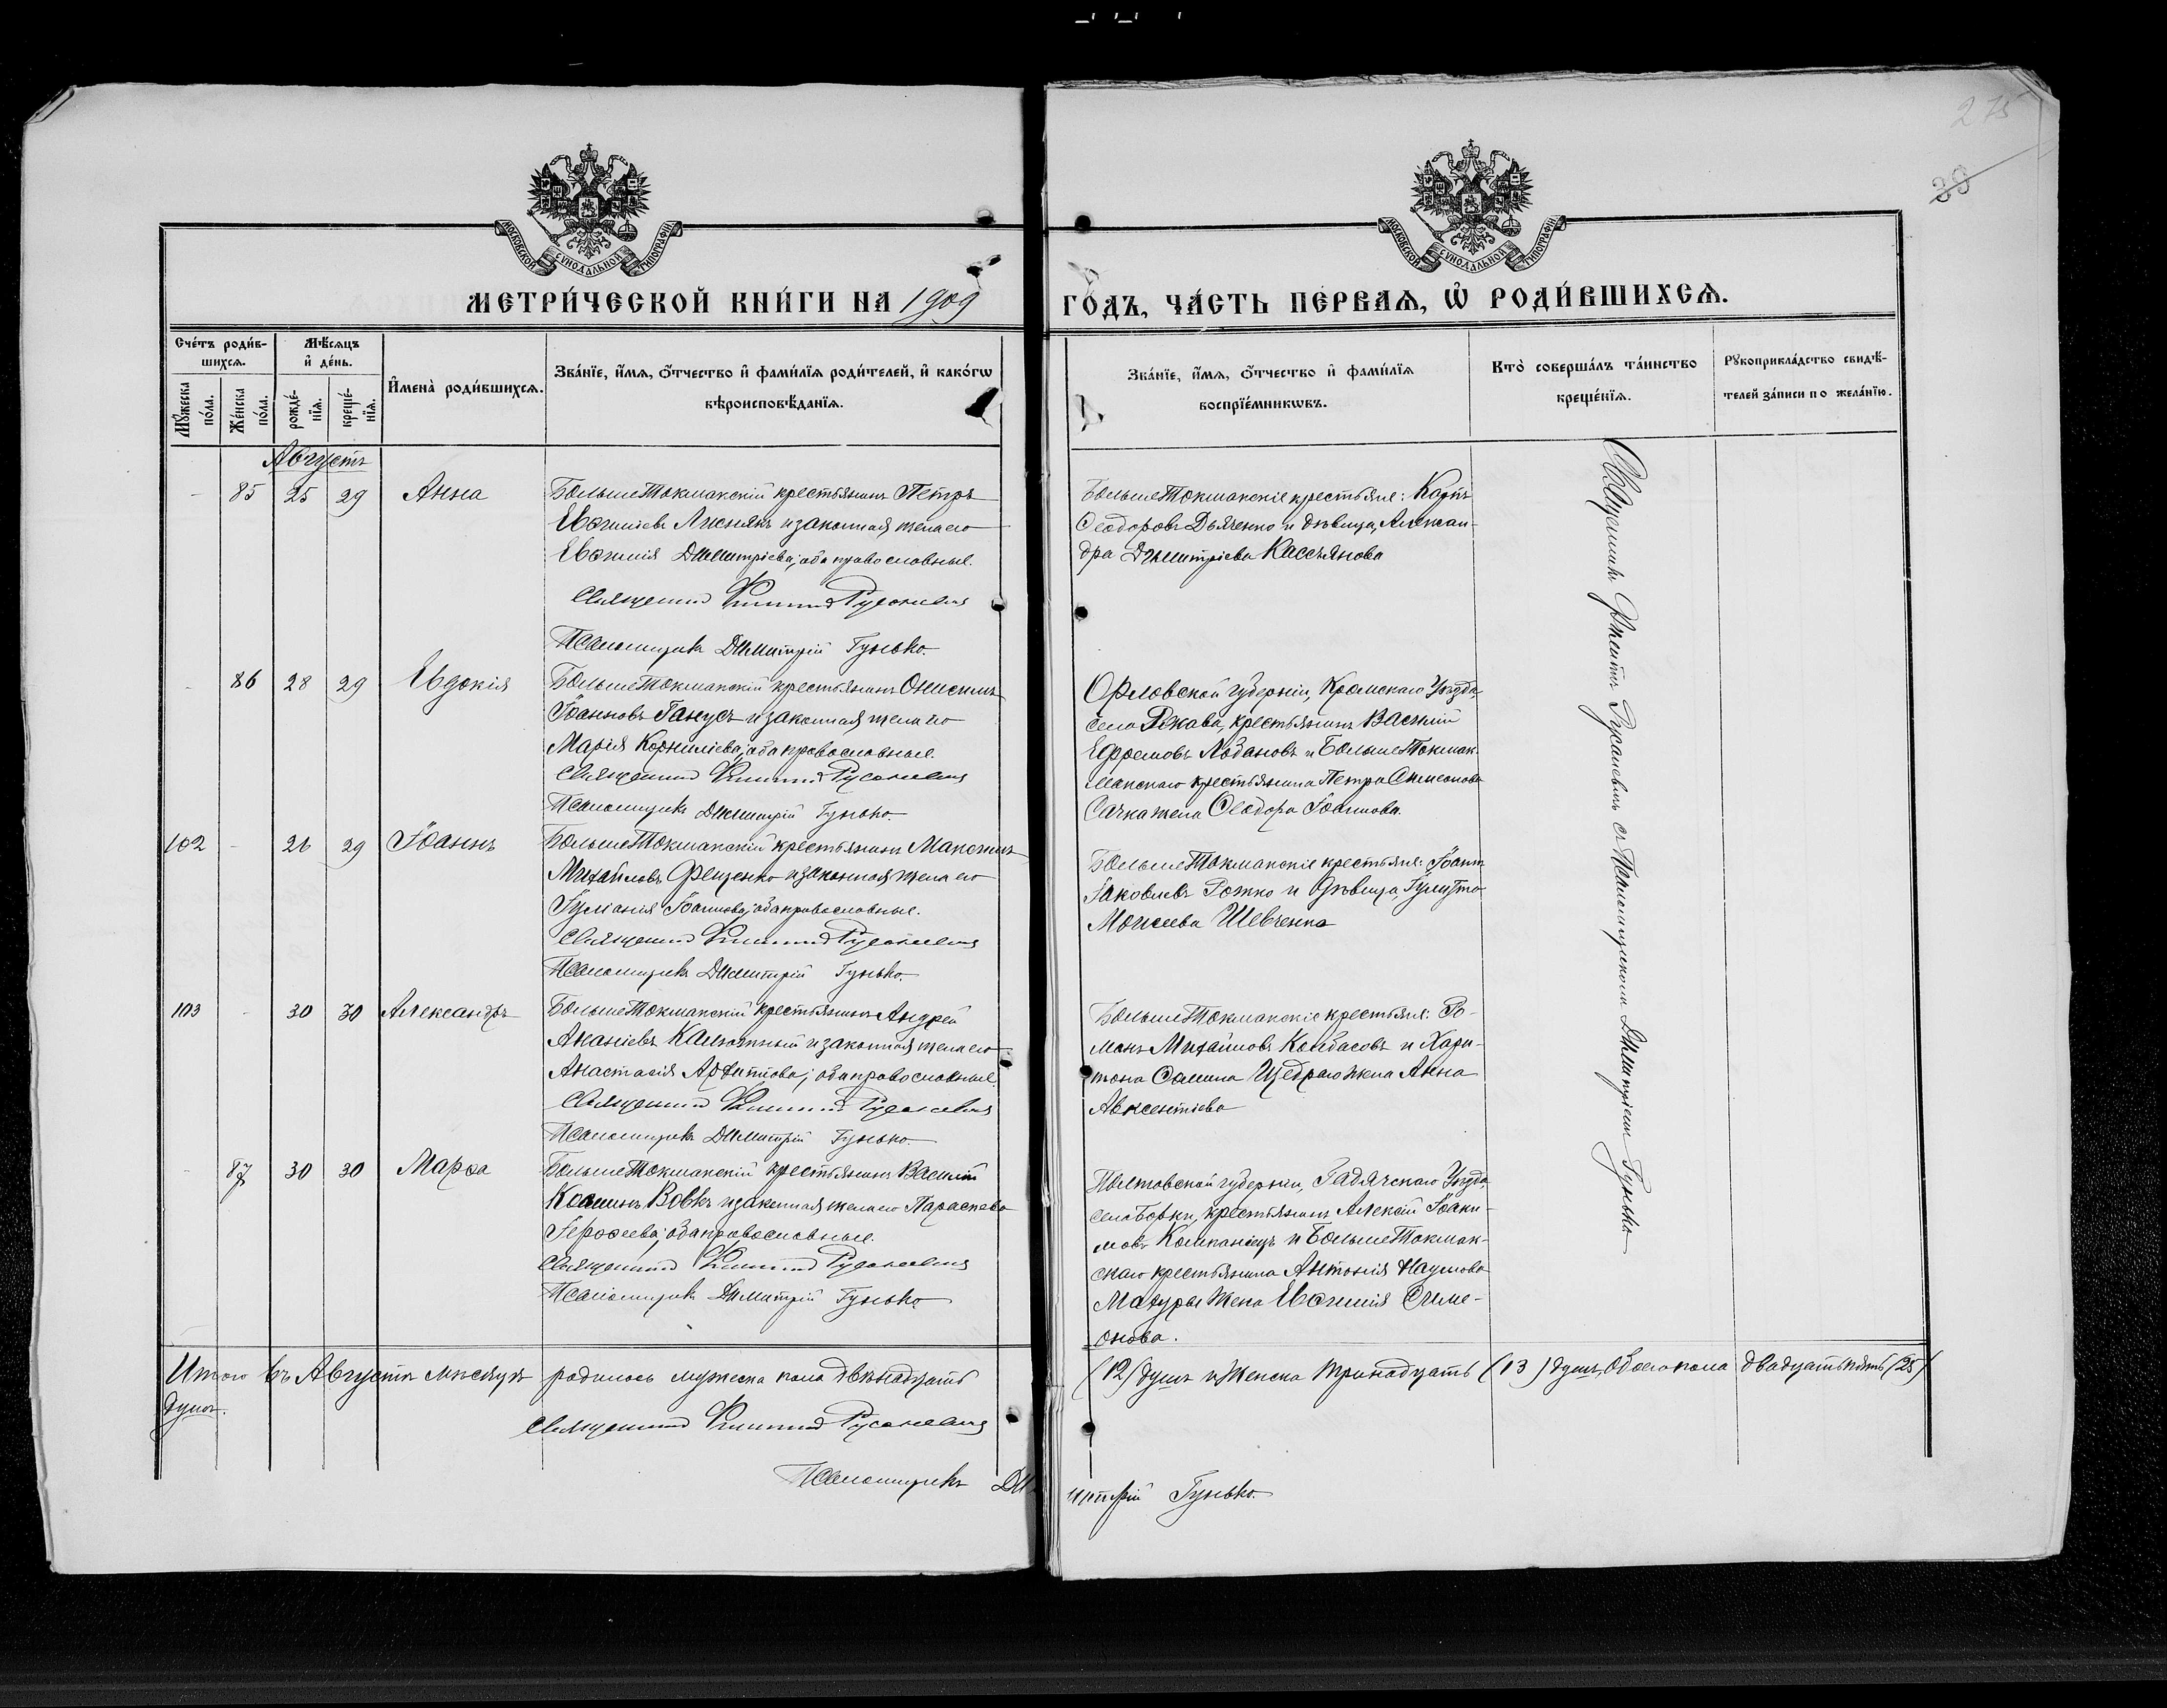 275
39
МОСКОВСКОЙ СѴНОДАЛЬНОЙ ТИПОГРАФІИ
МОСКОВСКОЙ СѴНОДАЛЬНОЙ ТИПОГРАФІИ
МЕТРИ́ЧЕСКОЙ КНИ́ГИ НА 1909
ГО́ДЪ, ЧА́СТЬ ПЕ́РВАѦ, Ѽ РОДИ́ВШИХСѦ.
Сче́тъ роди́в-
шихсѧ.
Мꙋ́жеска по́ла.
Же́нска по́ла.
Мѣ́сѧцъ
и҆ де́нь.
рожде́-
нїѧ.
креще́-
нїѧ.
И҆мена̀ роди́вшихсѧ.
Зва́нїе, и҆́мѧ, ѻ҆́тчество и҆ фами́лїѧ роди́телей, и҆ како́гѡ
вѣроисповѣ́данїѧ.
Зва́нїе, и҆́мѧ, ѻ҆́тчество и҆ фами́лїѧ
воспрїе́мникѡвъ.
Кто̀ соверша́лъ та́инство
креще́нїѧ.
Рꙋкоприкла́дство свидѣ́-
телей за́писи по жела́нїю.
Августъ
- 85 25 29 Анна
БольшеТокмакскій крестьянинъ Петръ
Евѳиміевъ Лиснякъ и законная жена его
Евѳимія Димитріева; оба православные.
Священникъ Филиппъ Русаневичъ
Псаломщикъ Димитрій Гунько.
БольшеТокмакскіе крестьяне: Карпъ
Ѳеодоровъ Дьяченко и дѣвица, Алексан-
дра Димитріева Кассьянова
Священникъ Филиппъ Русаневичъ съ Псаломщикомъ Димитріемъ Гунько
- 86 28 29 Евдокія
БольшеТокмакскій крестьянинъ Онисимъ
Іоанновъ Ганусъ и законная жена его
Марія Корниліева; оба православные.
Священникъ Филиппъ Русаневичъ
Псаломщикъ Димитрій Гунько.
Орловской губерніи, Кромскаго Уѣзда
села Ржава, крестьянинъ Василій
Ефремовъ Лобановъ и БольшеТокмак
макскаго крестьянина Петра Симеонова
жена Ѳеодора Іоаннова.
102 - 26 29 Іоаннъ
БольшеТокмакскій крестьянинъ Максимъ
Михайловъ Фещенко и законная жена его
Іуліанія Іоаннова; оба православные.
Священникъ Филиппъ Русаневичъ
Псаломщикъ Димитрій Гунько.
БольшеТокмакскіе крестьяне: Іоаннъ
Іаковлевъ Рожко и дѣвица, Іулитта
Моисеева Шевченко
103 - 30 30 Александръ
БольшеТокмакскій крестьянинъ Андрей
Ананіевъ и законная жена его
Анастасія Архиппова; оба православные.
Священникъ Филиппъ Русаневичъ
Псаломщикъ Димитрій Гунько.
БольшеТокмакскіе крестьяне: Ро-
манъ Михайловъ Колбасовъ и Хари-
тона Савина Щедраго жена Анна
Авксентіева
- 87 30 30 Марѳа
БольшеТокмакскій крестьянинъ Василій
Косминъ Вовкъ и законная жена его Параскева
Іероѳеева; оба православные.
Священникъ Филиппъ Русаневичъ
Псаломщикъ Димитрій Гунько
Полтавской губерніи, Гадячскаго Уѣзда,
села Борки, крестьянинъ Алексій Іоаки-
мовъ Компаніецъ и БольшеТокмак-
скаго крестьянина Антонія Наумова
Мазуры жена Евѳимія Симе-
онова.
Итого въ Августѣ мѣсяцѣ родилось мужеска пола двѣнадцать (12) душъ и женска тринадцать (13) душъ, обоего пола двадцать пять (25)
душъ.
Священникъ Филиппъ Русаневичъ
Псаломщикъ Димитрій Гунько.